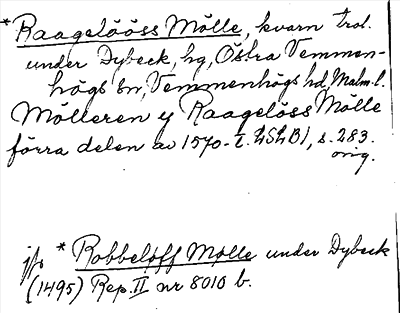 *Raagelööss Mölle, kvarn trol.
under Dybeck, hg, Östra Vemmen-
högs sn, Vemmenhögs hd, Malm. l.
Mölleren y Raagelöss Mölle
förra delen av 1570-t. LSLB1, s. 283.
orig.
jfr *Robbelöff Mølle under Dybeck
(1495) Rep. II nr 8010 b.